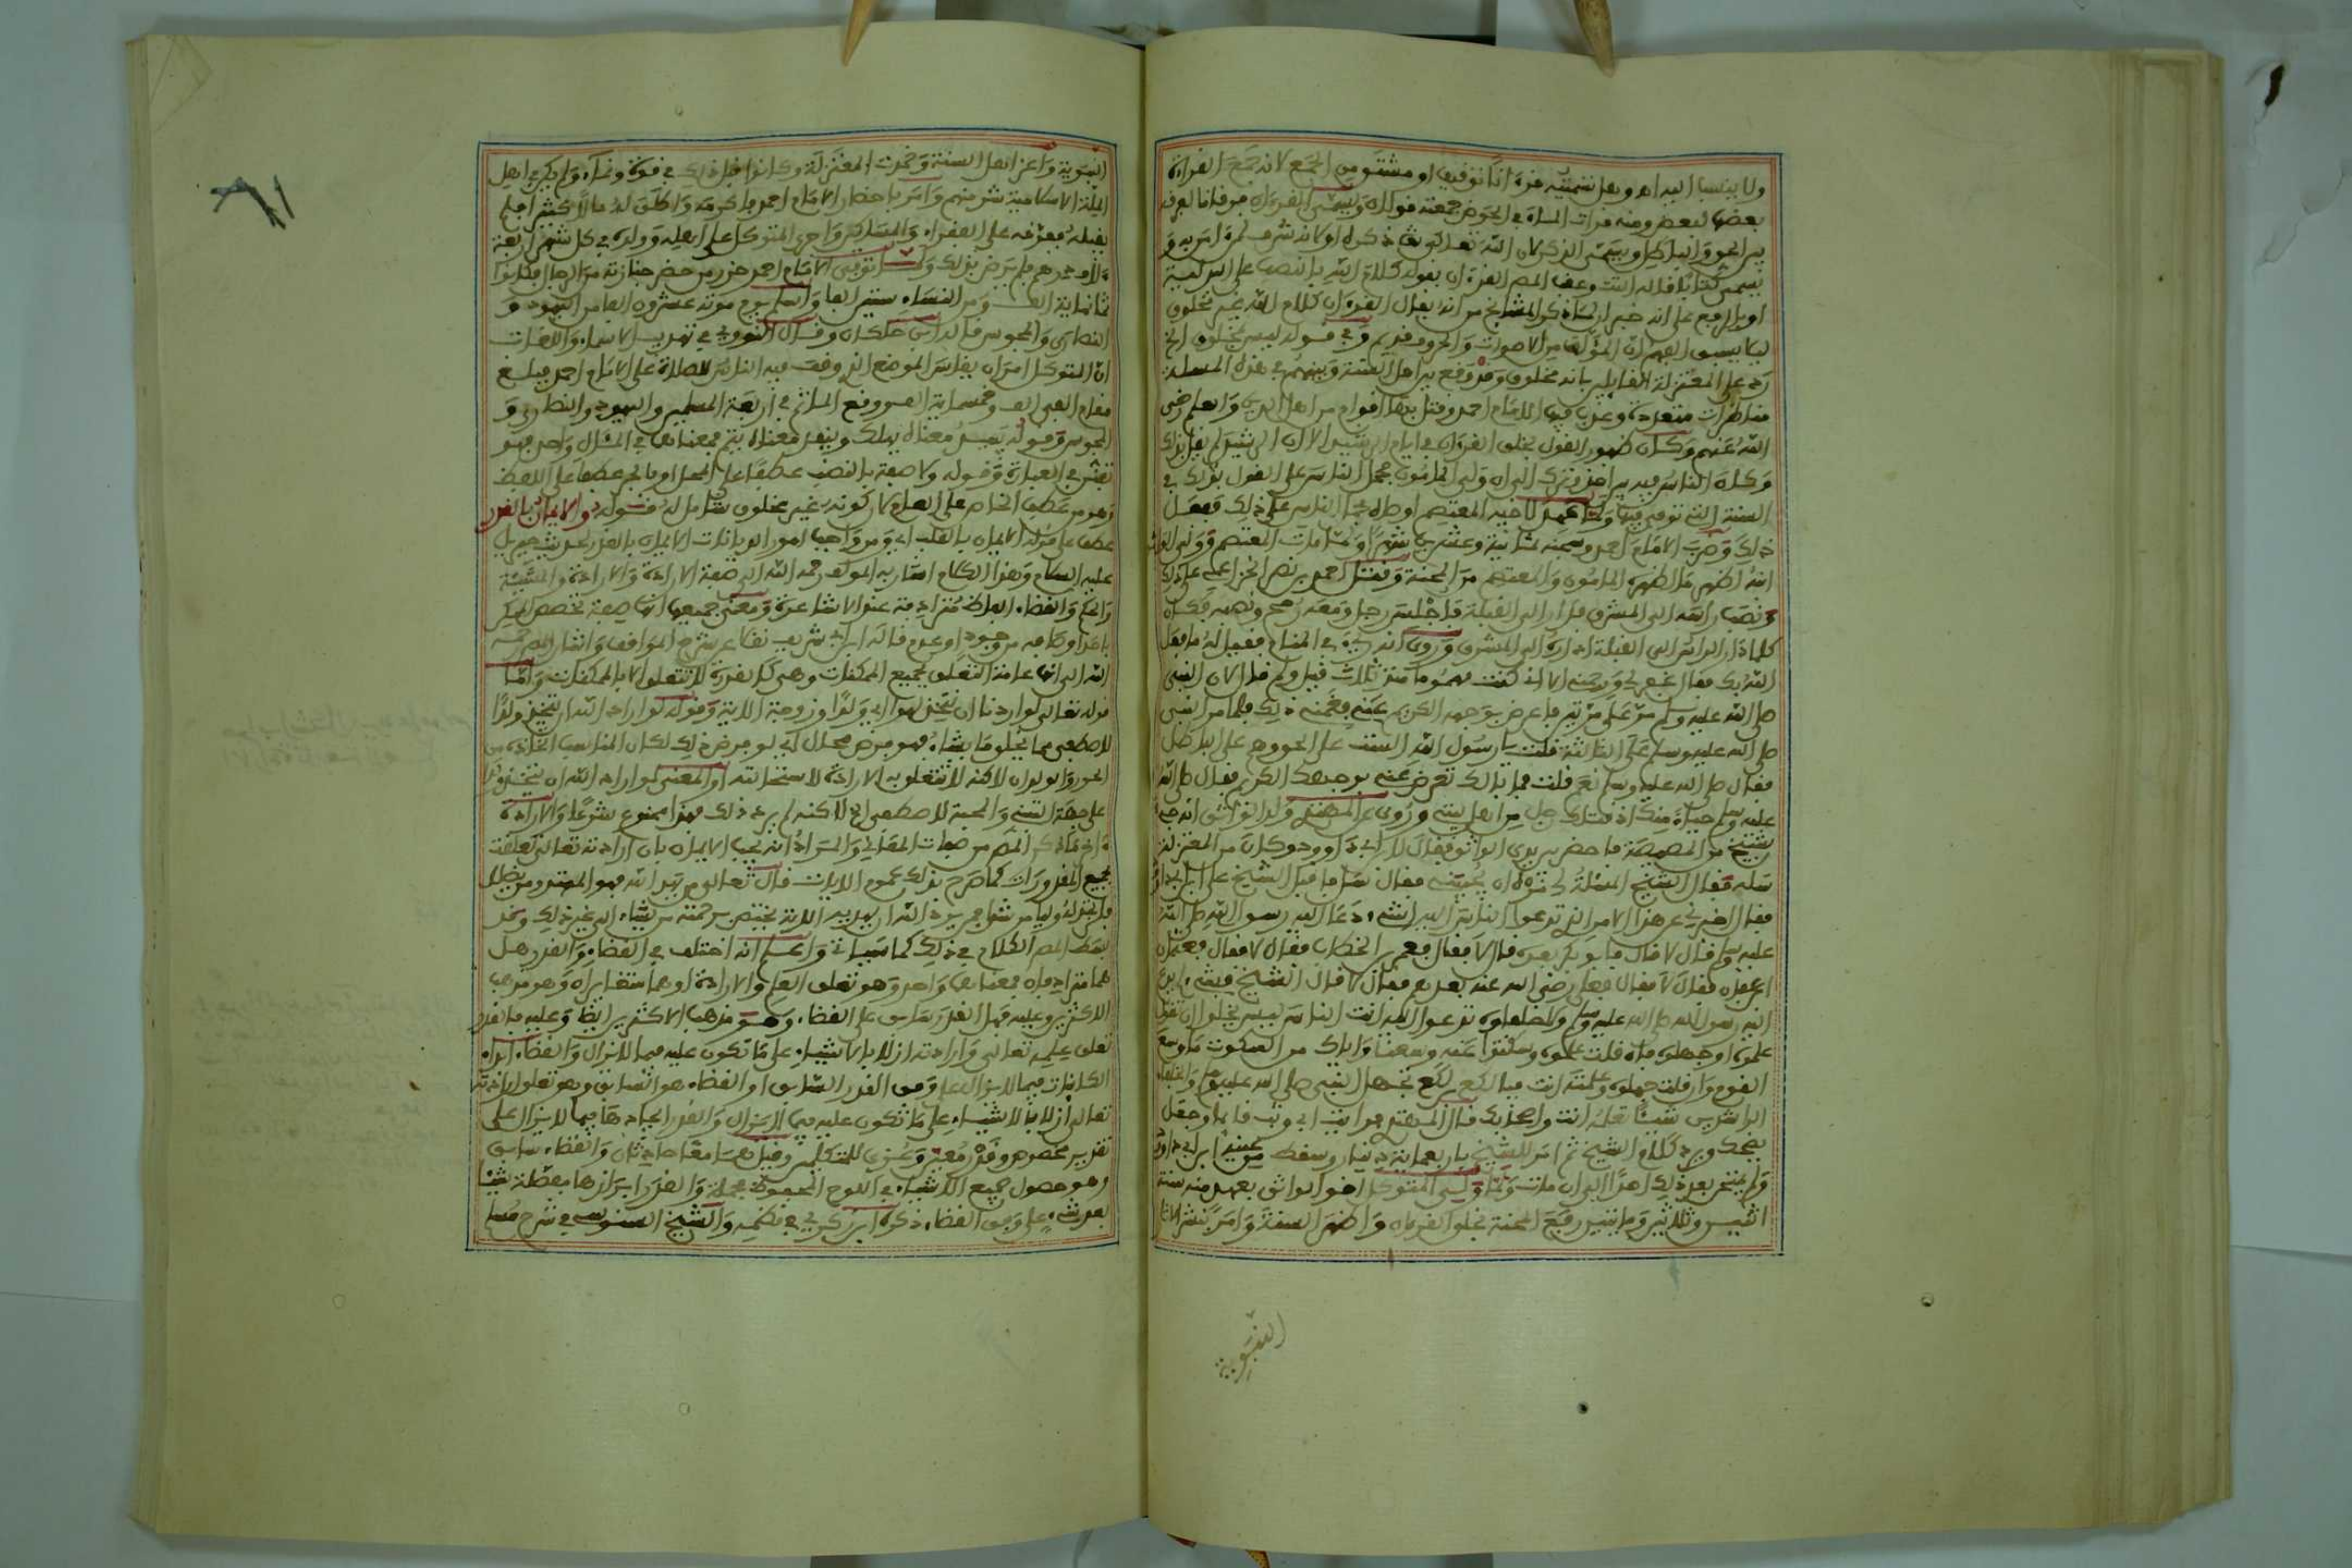 ولا ينسبا اليه اه وهل تسميته قرءانا توقيفي او مشتق من الجمع لانه جمع القراءة
بعضها لبعض ومنه قرات الماء في الحوض جمعته قولان ويسمى القرءان فرقانا لفرقه
بين الحق والباطل ويسمى الذكر لان الله تعالى ذكره او لانه شرف لمن امن به و
يسمى كتابا قاله البيت وعن المص القرءان بقوله كلام الله بالنصب على البدلية
او بالرفع على انه خبر ان ذكر المشايخ من انه يقال القرءان كلام الله غير مخلوق
ليلا يسبق الى الفهم ان المؤلف من الاصوات والحروف قديم وفي قوله ليس بمخلوق الخ
رد على المعتزلة القايلين بانه مخلوق وقد وقع بين اهل السنة وبينهم في هذه المسئلة
مناظرات متعددة وعذب فيها الامام احمد وقتل فيها اقوام من اهل الدين والعلم رضي
الله عنهم وكان ظهور القول بخلق القرءان في ايام الرشيد الا ان الرشيد لم يقل بذلك
وكان الناس فيه بين اخذ وترك الى ان ولي المامون فحمل الناس على القول بذلك في
السنة التي توفي فيها ولما عهد لاخيه المعتصم اوصاه بحمل الناس على ذلك ففعل
ذلك وضرب الامام احمد وسجنه ثمانية وعشرين شهرا ولما مات المعتصم وولي الواثق
ابنه اظهر ما اظهره المامون والمعتصم من المحنة وقتل احمد بن نصر الخزاعي على ذلك
ونصب راسه الى المشرق فدار الى القبلة فاجلس رجل ومعه رمح او قصبة فكان
كلما دار الراس الى القبلة اداره الى المشرق وروي انه رءي في المنام فقيل له ما فعل
الله بك فقال غفر لي ورحمني الا اني كنت مهموما منذ ثلاث قيل ولم قال لان النبي
صلى الله عليه وسلم مر علي مرتين فاعرض بوجهه الكريم عني فغمني ذلك فلما مر النبي
صلى الله عليه وسلم علي الثالثة قلت يا رسول الله الست على الحق وهم على الباطل
فقال صلى الله عليه وسلم نعم قلت فما بالك تعرض عني بوجهك الكريم فقال صلى الله
عليه وسلم حياء منك اذ قتلك رجل من اهل بيتي وروي عن المهتدي ولد الواثق انه جيء
بشيخ من المصيصة فاحضر بين يدي الواثق فقال لابن ابي داوود وكان من المعتزلة
سله فقال الشيخ المسئلة لي فمره ان يجيبني فقال سل فاقبل الشيخ على ابن ابي داود
فقال اخبرني عن هذا الامر الذي تدعوا الناس اليه اشيء دعا اليه رسول الله صلى الله
عليه وسلم قال لا قال فابو بكر بعده قال لا فقال فعمر بن الخطاب فقال لا فقال فعثمان
ابن عفان فقال لا فقال فعلي رضي الله عنه بعدهم فقال لا قال الشيخ فشيء لم يدع
اليه رسول الله صلى الله عليه وسلم والخلفاء تدعوا اليه انت الناس ليس يخلوا ان تقول
علموه او جهلوه فان قلت علموه وسكتوا عنه وسعنا واياك من السكوت ما وسع
القوم وان قلت جهلوه وعلمته انت فيا لكع بن لكع يجهل النبي صلى الله عليه وسلم والخلفاء
الراشدين شيئا تعلمه انت واصحابك قال المهتدي فرايت ابي وثب قائما وجعل
يضحك ويردد كلام الشيخ ثم امر للشيخ باربعماية دينار وسقط من عينه ابن ابي داود
ولم يمتحن بعد ذلك احدا الى ان مات ولما ولي المتوكل اخو الواثق بعهد منه سنة
اثنين وثلاثين ومايتين رفع المحنة بخلق القرءان واظهر السنة وامر بنشر الاثار
النبوية
النبوية واعز اهل السنة وخمدت المعتزلة وكانوا قبل ذلك في قوة ونماء ولم يكن في اهل
الملة الاسلامية شر منهم وامر باحضار الامام احمد فاكرمه واطلق له مالا كثيرا فلم
يقبله ففرقه على الفقراء والمساكين واجرى المتوكل على اهله وولده في كل شهر اربعة
ءالاف درهم فلم يرض بذلك ولما توفي الامام احمد حزر من حضر جنازته من الرجال فكانوا
ثمانماية الف ومن النساء ستين الفا واسلم يوم موته عشرون الفا من اليهود و
النصارى والمجوس قاله ابن خلكان وقال النووي في تهذيب الاسماء واللغات
ان المتوكل امر ان يقاس الموضع الذي وقف فيه الناس للصلاة على الامام احمد فبلغ
مقام الفي الف وخمسماية الف ووقع الماتم في اربعة المسلمين واليهود والنصارى و
المجوس وقوله يبيد معناه يهلك وينفد معناه يتم فمعناهما في المئال واحد فهو
تفنن في العبارة وقوله ولا صفة بالنصب عطفا على المحل او بالجر عطفا على اللفظ
وهو من عطف الخاص على العام لان كونه غير مخلوق شامل له قوله والايمان بالقدر
عطف على قوله الايمان بالقلب اي ومن واجب امور الديانات الايمان بالقدر لحديث جبريل
عليه السلام وبهذا الكلام اشار به المؤلف رحمه الله الى صفة الارادة والارادة والمشيئة
والحكم والقضاء الفاظ مترادفة عند الاشاعرة ومعنى جميعها انها صفة تخصص الممكن
باحد اوصافه من وجود او عدم قاله ابن ابي شريف نقلا عن شرح المواقف واشار المص رحمه
الله الى انها عامة التعلق بجميع الممكنات وهي كالقدرة لا تتعلق الا بالممكنات واما
قوله تعالى لو اردنا ان نتخذ لهوا اي ولدا او زوجة الاية وقوله لو اراد الله ان يتخذ ولدا
لاصطفى مما يخلق ما يشاء فهو فرض محال اي لو فرض ذلك لكان المناسب اتخاذه من
الحور والولدان لاكنه لا تتعلق به الارادة لاستحالته او المعنى لو اراد الله ان يتخذ ولدا
على جهة التبني والمحبة لاصطفى الخ لاكنه لم يرد ذلك فهذا ممنوع شرعا والارادة
بجميع المقدورات كما صرح بذلك عموم الايات قال تعالى من يهد الله فهو المهتد ومن يضلل
بسط المص الكلام في ذلك كما سياتي واعلم انه اختلف في القضاء والقدر هل
هما مترادفان فمعناهما واحد وهو تعلق العلم والارادة او هما متغايران وهو مذهب
الاكثرين وعليه فهل القدر سابق على القضاء وهو مذهب الاكثرين ايضا وعليه فالقدر
تعلق علمه تعالى وارادته ازلا بالاشياء على ما تكون عليه فيما لا يزال والقضاء ابراز
الكائنات فيما لا يزال على وفق القدر السابق او القضاء هو السابق وهو تعلق ارادته
تعالى ازلا بالاشياء على ما تكون عليه فيما لا يزال والقدر ايجادها فيما لا يزال على
تقدير مخصوص وقدر معين وعزي للمتكلمين وقيل هما معا حادثان والقضاء سابق
وهو حصول جميع الاشياء في اللوح المحفوظ مجملة والقدر ابرازها مفصلة شيئا
بعد شيء على وفق القضاء ذكره ابن زكري في نظمه والشيخ السنوسي في شرح مسلم